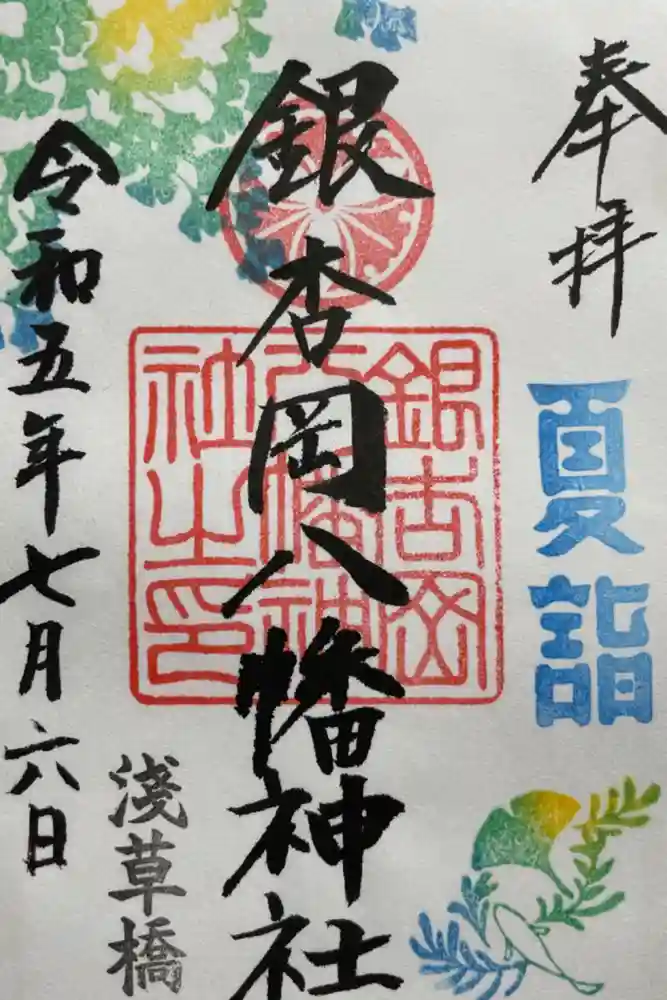 奉拝
夏詣
銀杏岡八幡神社
銀杏岡
八幡神
社之印
浅草橋
令和五年七月六日